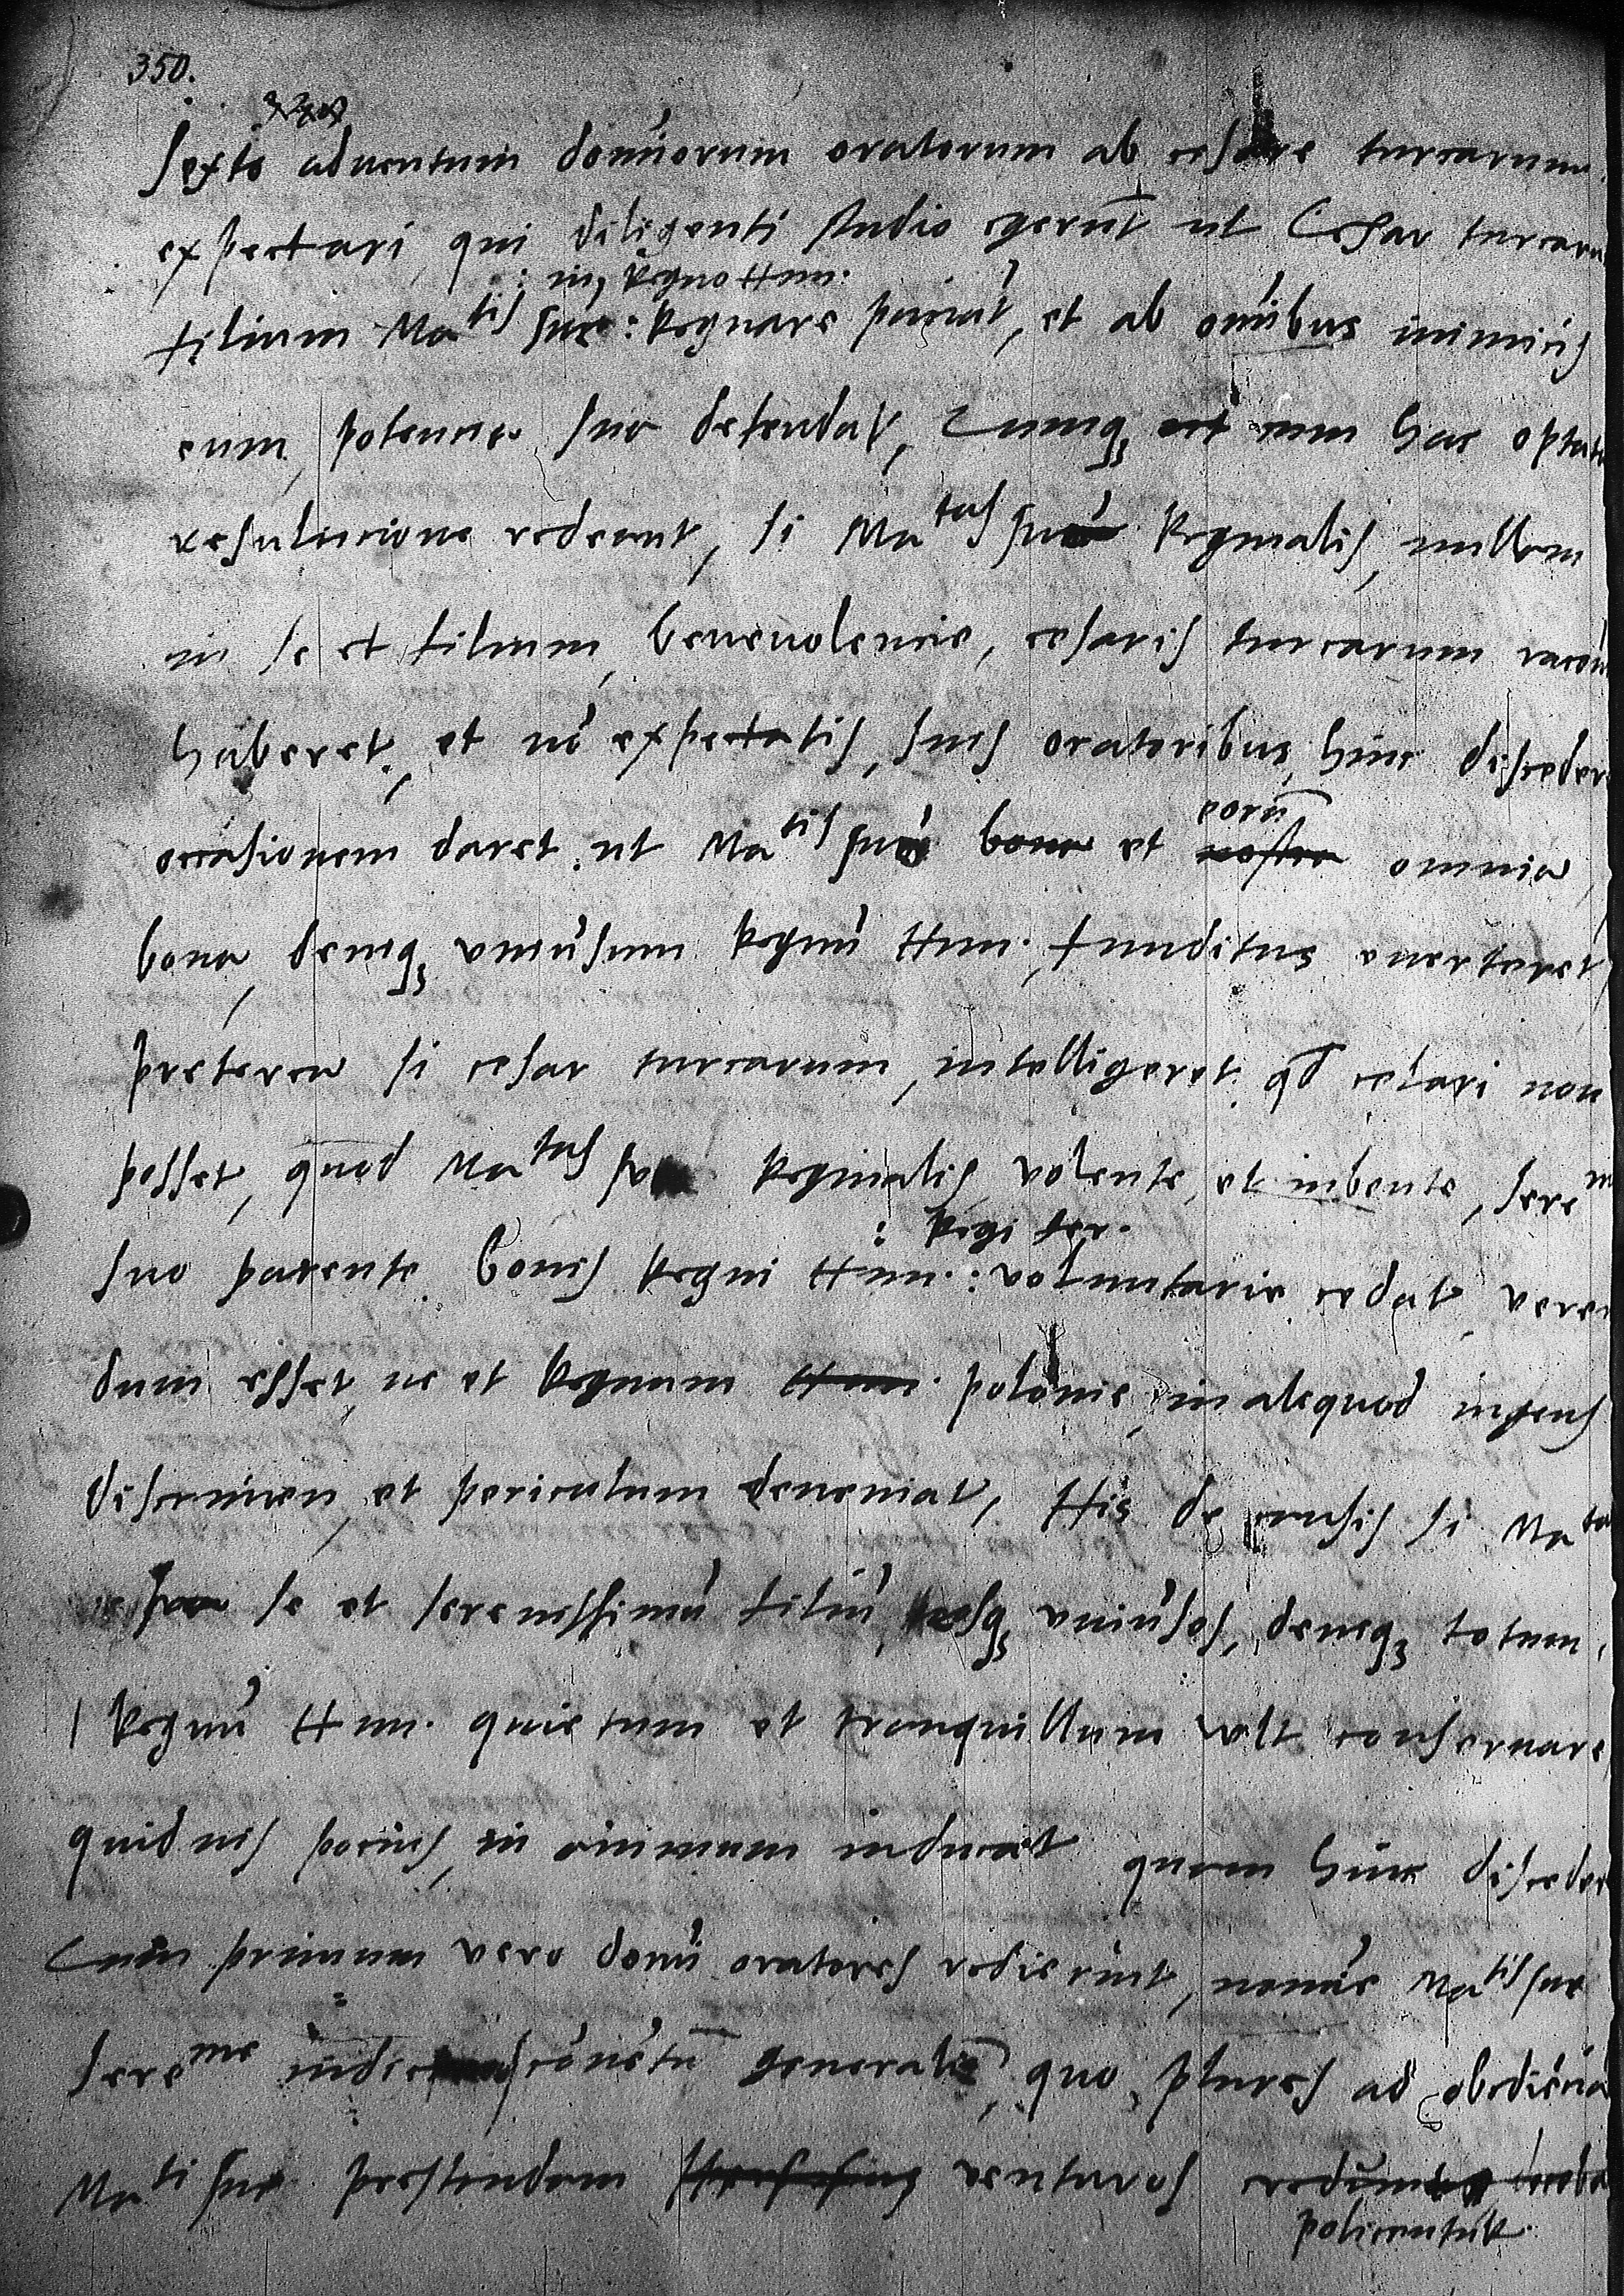 350.
Sexto aduentum dominorum oratorum ab cesare turcarum
expectari, qui diligenti studio egerūt ut Cesar turcaru
: in regno Hun.
filium Matis sue : Regnare sinat, et ab omībus inimicis
eum, potencia sua defendat, Cumq₃ cum hac optata
resolucione redeant, si Matas sua Reginalis, nullam
in se et filium, beneuolencie, cesaris turcarum racōn
haberet, et nō expectatis, suis oratoribus, hinc disceder
eorū
occasionem daret, ut Matis sue bona et nostra omnia
bona, deniq₃ vniūsum Regnū Hun. funditus euerteret,
preterea si cesar turcarum, intelligeret, qd celari non
posset, quod Matas sua Reginalis, volente, et iubente, sere
: Regi fer.
suo parente. bonis Regni Hun. : voluntarie cedat, veren
dum esset, ne et Regnum Hun. polonie, in aliquod ingens
discrimen, et periculum deueniat, His de causis si Mata
sua se et serenissimū filiū, nosq₃ vniūsos, deniq₃ totum
Regnū Hun. quietum et tranquillum vlt conseruare
quiduis pocius, in animum inducat quam hinc discedere
Cum primum vero domī oratores redierint, nomīe Matis sue
sereme indicet cōuētū generalē, quo, plures ad obediēcia
Mati sue prestandam venturos credūt
policentur.